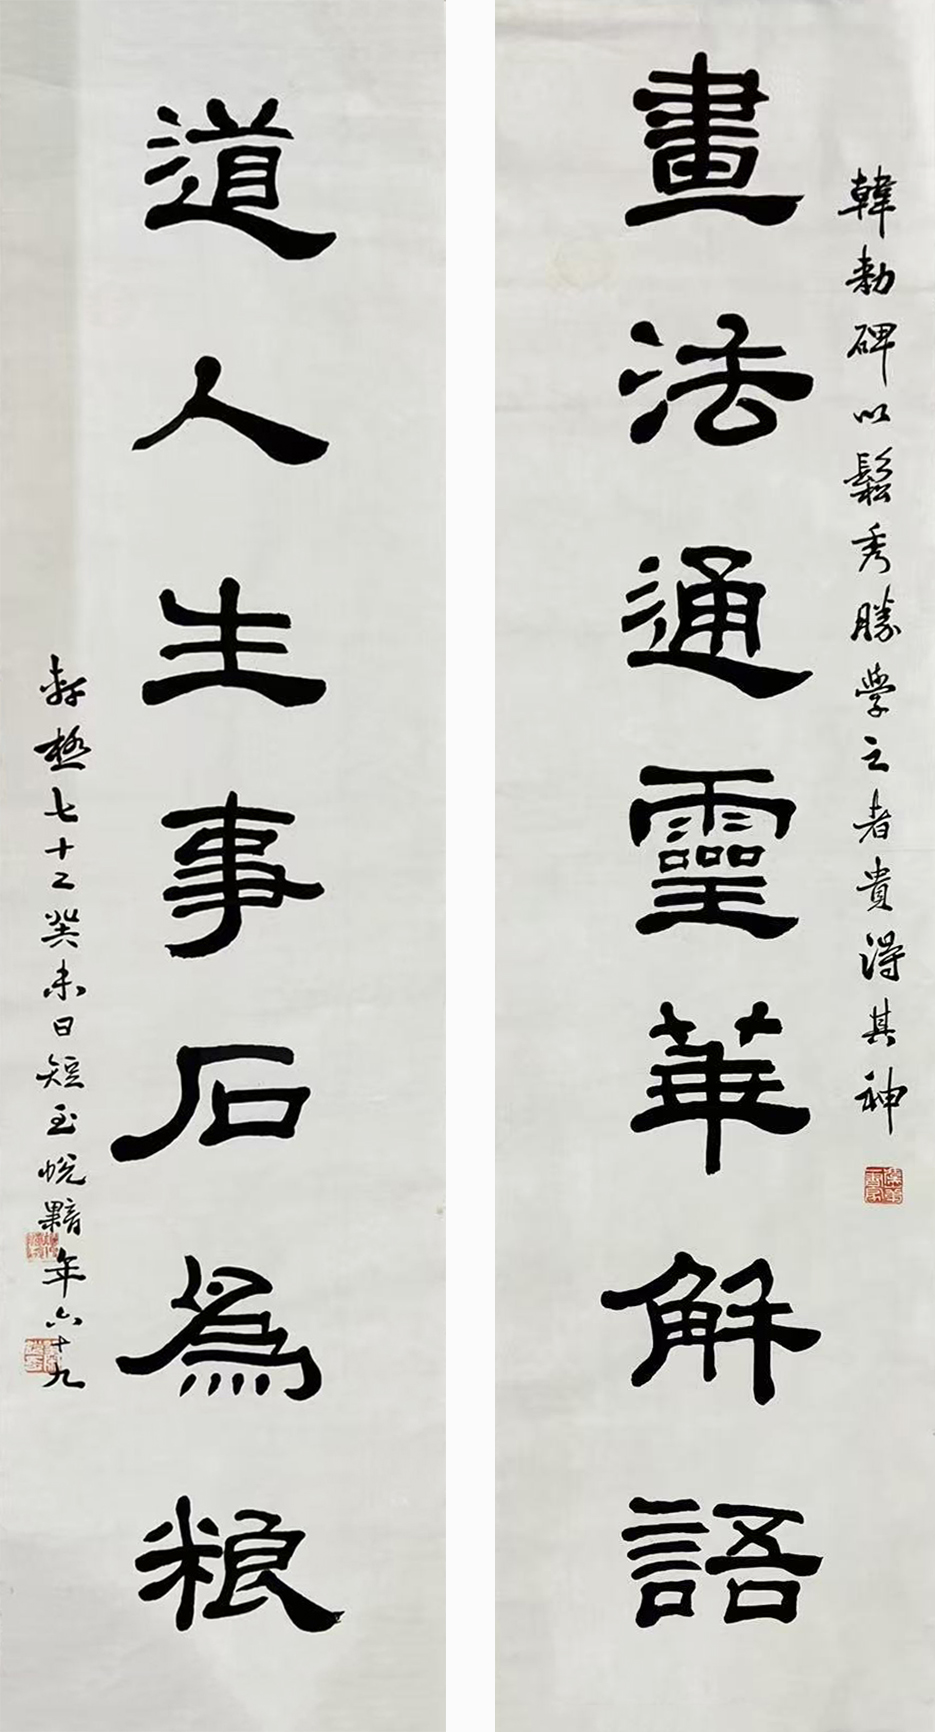 韓勑碑以鬆秀勝學之者貴得其神
畫法通靈華解語
道人生事石爲粮
軒極七十二癸未日短至年六十九